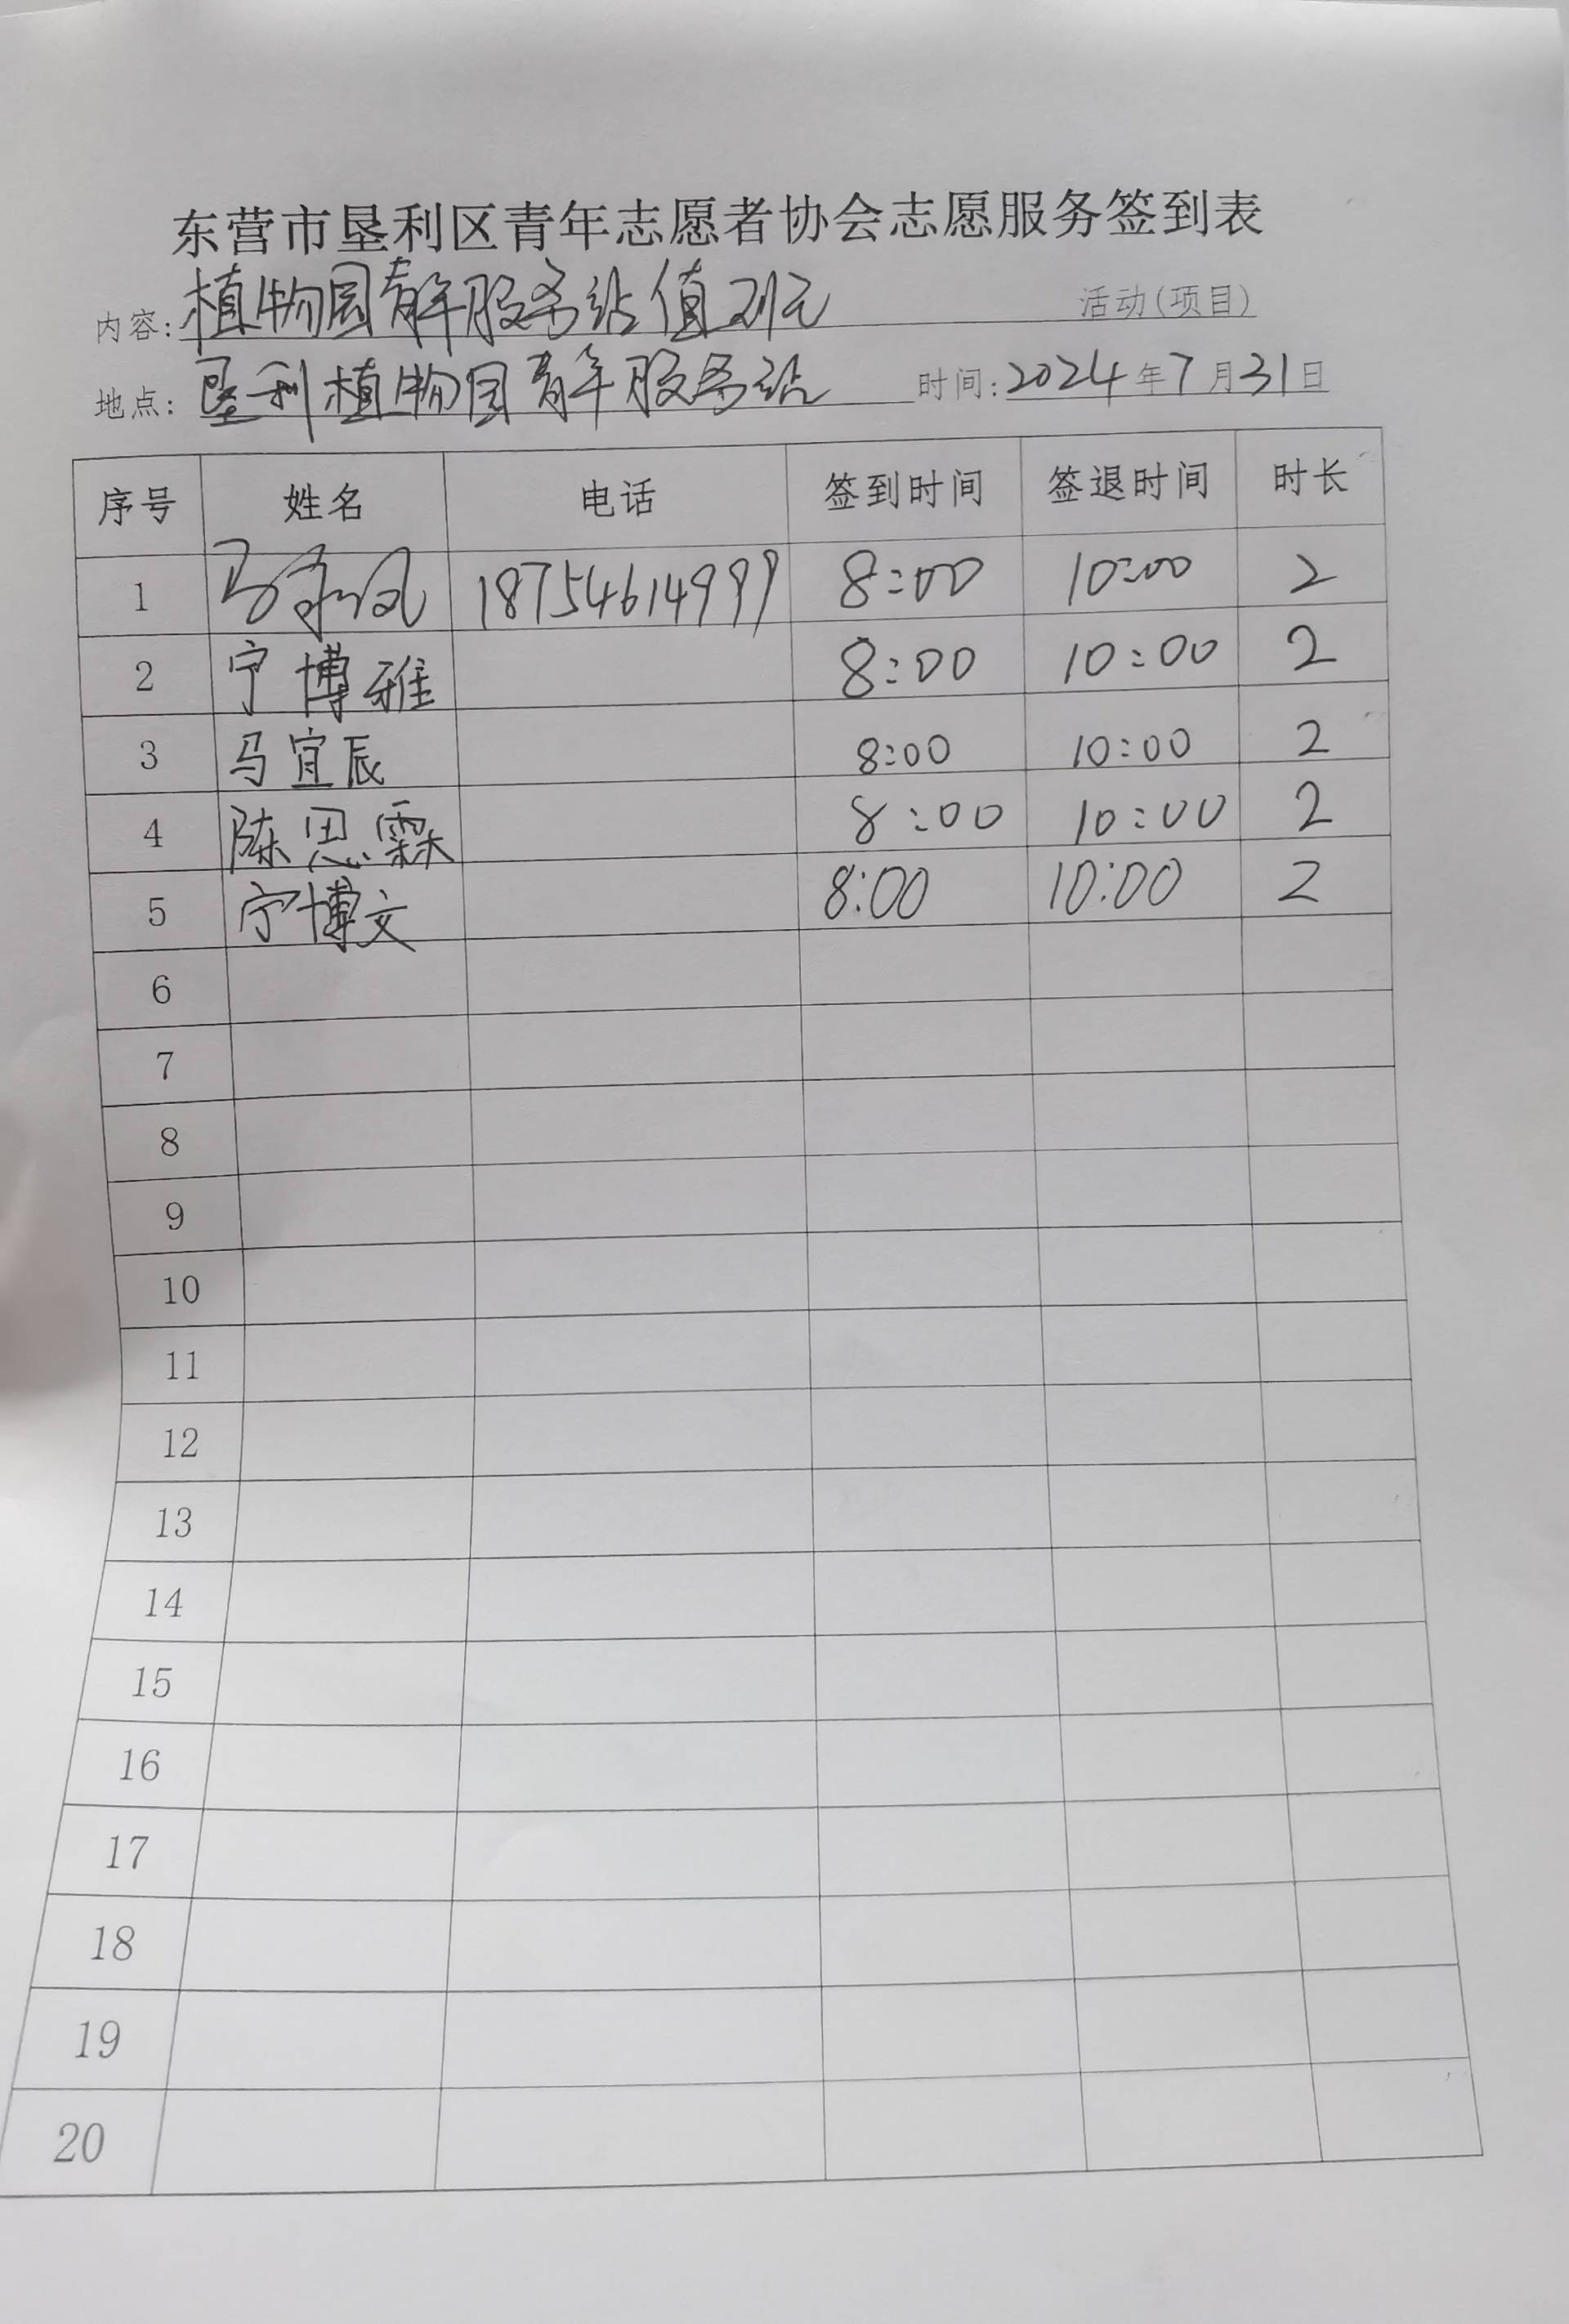 东营市垦利区青年志愿者协会志愿服务签到表
内容: 植物园青年服务站值班 活动(项目)
地点: 垦利植物园青年服务站 时间: 2024年7月31日
序号 姓名 电话 签到时间 签退时间 时长
1 18754614999 8:00 10:00 2
2 宁博雅 8:00 10:00 2
3 马宜辰 8:00 10:00 2
4 陈思霖 8:00 10:00 2
5 宁博文 8:00 10:00 2
6
7
8
9
10
11
12
13
14
15
16
17
18
19
20